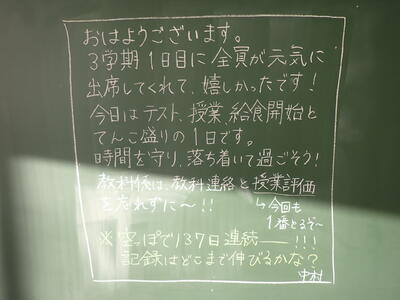 おはようございます。
3学期1日目に全員が元気に
出席してくれて、嬉しかったです!
今日はテスト、授業、給食開始と
てんこ盛りの1日です。
時間を守り、落ち着いて過ごそう!
教科係は、教科連絡と授業評価
を忘れずに～!!
↳今回も
1番とるぞ～
※空っぽで137日連続――!!!
記録はどこまで伸びるかな?
中村